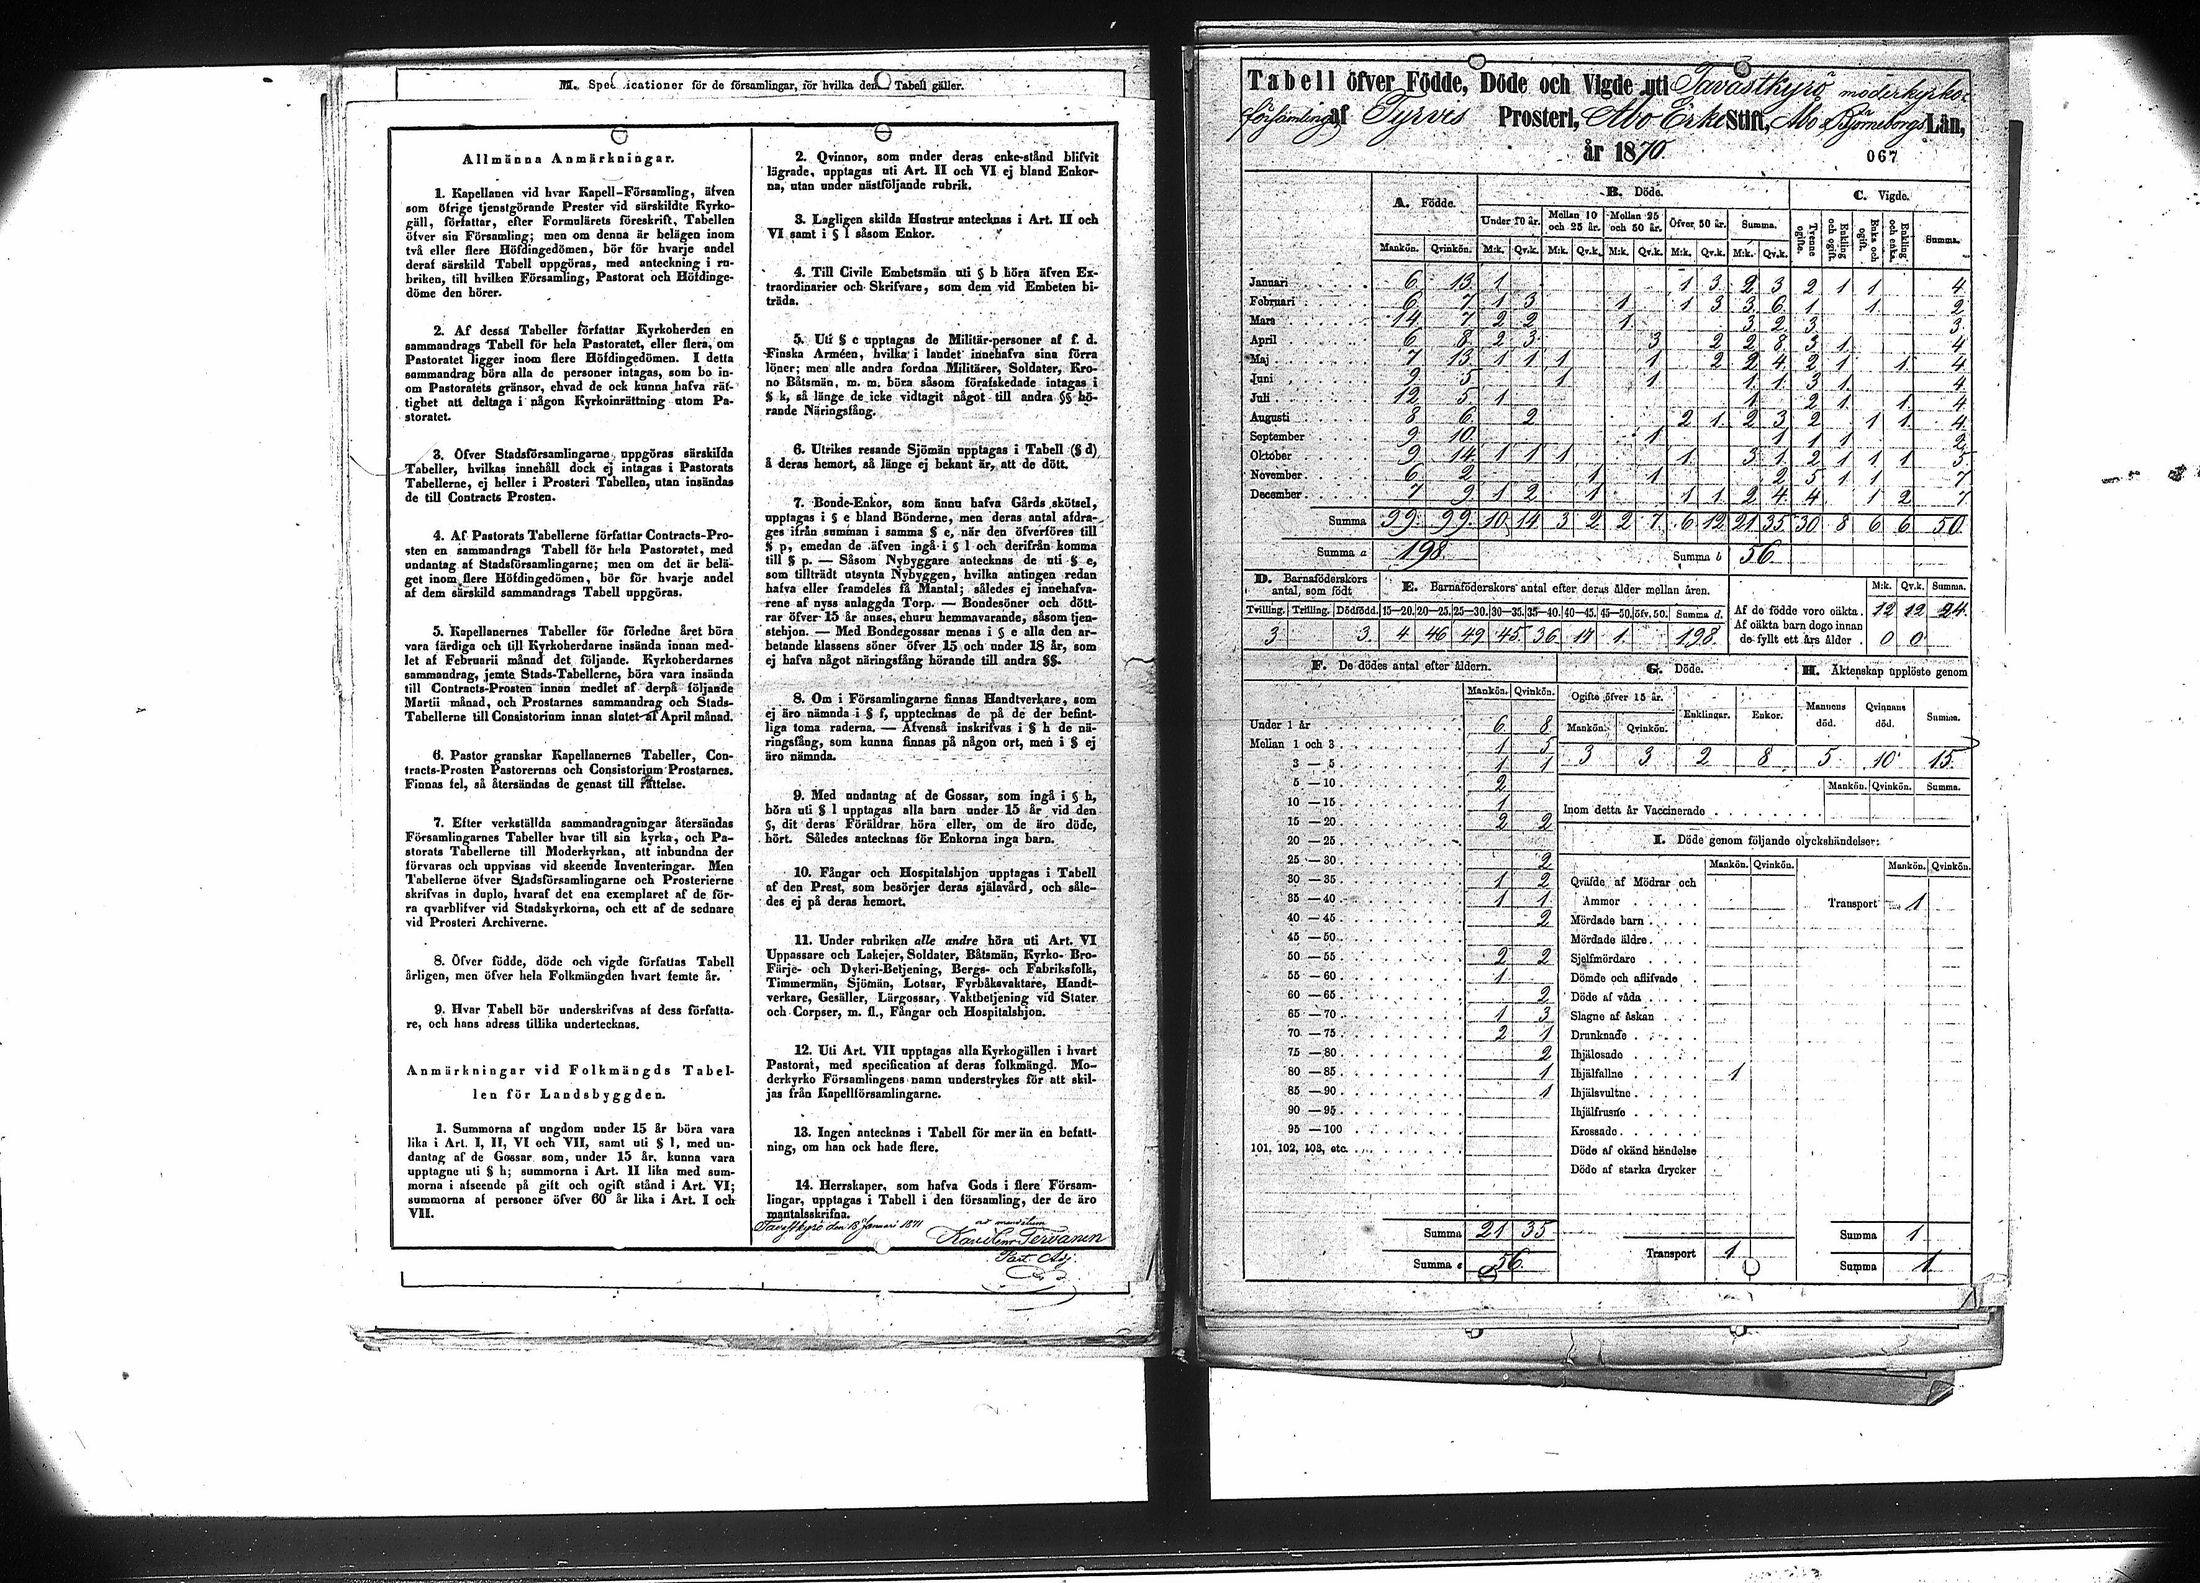 M. Specificationer för de församlingar, för hvilka denna Tabell gäller.
Allmänna Anmärkningar.
1. Kapellanen vid hvar Kapell-Församling, äfven
som öfrige tjenstgörande Prester vid särskildte Kyrko-
gäll, författar, efter Formulärets föreskrift, Tabellen
öfver sin Församling; men om denna är belägen inom
två eller flere Höfdingedömen, bör för hvarje andel
deraf särskild Tabell uppgöras, med anteckning i ru-
briken, till hvilken Församling, Pastorat och Höfdinge-
döme den hörer.
2. Af dessa Tabeller författar Kyrkoherden en
sammandrags Tabell för hela Pastoratet, eller flera, om
Pastoratet ligger inom flere Höfdingedömen. I detta
sammandrag böra alla de personer intagas, som bo in-
om Pastoratets gränsor, ehvad de ock kunna hafva rät-
tighet att deltaga i någon Kyrkoinrättning utom Pa-
storatet.
3. Öfver Stadsförsamlingarne uppgöras särskilda
Tabeller, hvilkas innehåll dock ej intagas i Pastorats
Tabellerne, ej heller i Prosteri Tabellen, utan insändas
de till Contracts Prosten.
4. Af Pastorats Tabellerne författar Contracts-Pro-
sten en sammandrags Tabell för hela Pastoratet, med
undantag af Stadsförsamlingarne; men om det är belä-
get inom flere Höfdingedömen, bör för hvarje andel
af dem särskild sammandrags Tabell uppgöras.
5. Kapellanernes Tabeller för förledne året böra
vara färdiga och till Kyrkoherdarne insända innan med-
let af Februarii månad det följande. Kyrkoherdarnes
sammandrag, jemte Stads-Tabellerne, böra vara insända
till Contracts-Prosten innan medlet af derpå följande
Martii månad, och Prostarnes sammandrag och Stads-
Tabellerne till Consistorium innan slutet af April månad.
6. Pastor granskar Kapellanernes Tabeller, Con-
tracts-Prosten Pastorernas och Consistorium Prostarnes.
Finnas fel, så återsändas de genast till rättelse.
7. Efter verkställda sammandragningar återsändas
Församlingarnes Tabeller hvar till sin kyrka, och Pa-
storats Tabellerne till Moderkyrkan, att inbundna der
förvaras och uppvisas vid skeende Inventeringar. Men
Tabellerne öfver Stadsförsamlingarne och Prosterierne
skrifvas in duplo, hvaraf det ena exemplaret af de för-
ra qvarblifver vid Stadskyrkorna, och ett af de sednare
vid Prosteri Archiverne.
8. Öfver födde, döde och vigde författas Tabell
årligen, men öfver hela Folkmängden hvart femte år.
9. Hvar Tabell bör underskrifvas af dess författa-
re, och hans adress tillika undertecknas.
Anmärkningar vid Folkmängds Tabel-
len för Landsbyggden.
1. Summorna af ungdom under 15 år böra vara
lika i Art. I, II, VI och VII, samt uti § l, med un-
dantag af de Gossar som, under 15 år, kunna vara
upptagne uti § h; summorna i Art. II lika med sum-
morna i afseende på gift och ogift stånd i Art. VI;
summorna af personer öfver 60 år lika i Art. I och
VII.
2. Qvinnor, som under deras enke-stånd blifvit
lägrade, upptagas uti Art. II och VI ej bland Enkor-
na, utan under nästföljande rubrik.
3. Lagligen skilda Hustrur antecknas i Art. II och
VI samt i § l såsom Enkor.
4. Till Civile Embetsmän uti § b höra äfven Ex-
traordinarier och Skrifvare, som dem vid Embeten bi-
träda.
5. Uti § c upptagas de Militär-personer af f. d.
Finska Arméen, hvilka i landet innehafva sina förra
löner; men alla andra fordna Militärer, Soldater, Kro-
no Båtsmän, m. m. böra såsom förafskedade intagas i
§ k, så länge de icke vidtagit något till andra §§ hö-
rande Näringsfång.
6. Utrikes resande Sjömän upptagas i Tabell (§ d)
å deras hemort, så länge ej bekant är, att de dött.
7. Bonde-Enkor, som ännu hafva Gårds skötsel,
upptagas i § e bland Bönderne, men deras antal afdra-
ges ifrån summan i samma § e, när den öfverföres till
§ p, emedan de äfven ingå i § l och derifrån komma
till § p. — Såsom Nybyggare antecknas de uti § e,
som tillträdt utsynta Nybyggen, hvilka antingen redan
hafva eller framdeles få Mantal; således ej innehafva-
rene af nyss anlaggda Torp. — Bondesöner och dött-
rar öfver 15 år anses, ehuru hemmavarande, såsom tjen-
stehjon. — Med Bondegossar menas i § e alla den ar-
betande klassens söner öfver 15 och under 18 år, som
ej hafva något näringsfång hörande till andra §§.
8. Om i Församlingarne finnas Handtverkare, som
ej äro nämnda i § f, upptecknas de på de der befint-
liga toma raderna. — Äfvenså inskrifvas i § h de nä-
ringsfång, som kunna finnas på någon ort, men i § ej
äro nämnda.
9. Med undantag af de Gossar, som ingå i § h,
böra uti § l upptagas alla barn under 15 år vid den
§, dit deras Föräldrar höra eller, om de äro döde,
hört. Således antecknas för Enkorna inga barn.
10. Fångar och Hospitalshjon upptagas i Tabell
af den Prest, som besörjer deras själavård, och såle-
des ej på deras hemort.
11. Under rubriken alle andre höra uti Art. VI
Uppassare och Lakejer, Soldater, Båtsmän, Kyrko- Bro-
Färje- och Dykeri-Betjening, Bergs- och Fabriksfolk,
Timmermän, Sjömän, Lotsar, Fyrbåksvaktare, Handt-
verkare, Gesäller, Lärgossar, Vaktbetjening vid Stater
och Corpser, m. fl., Fångar och Hospitalshjon.
12. Uti Art. VII upptagas alla Kyrkogällen i hvart
Pastorat, med specification af deras folkmängd. Mo-
derkyrko Församlingens namn understrykes för att skil-
jas från Kapellförsamlingarne.
13. Ingen antecknas i Tabell för mer än en befatt-
ning, om han ock hade flere.
14. Herrskaper, som hafva Gods i flere Försam-
lingar, upptagas i Tabell i den församling, der de äro
mantalsskrifna.
Tavastkyrö den 18 Januari 1871
ad mandatum
Tervanen
Past. Adj.
Tabell öfver Födde, Döde och Vigde uti Tavastkyrö moderkyrko-
församling af Tyrvis Prosteri, Åbo ErkeStift, Åbo Björneborgs Län,
år 1870.
067
A. Födde. B. Döde. C. Vigde.
Under 10 år. Mellan 10 och 25 år. Mellan 25 och 50 år. Öfver 50 år. Summa. Tvenne ogifte. Enkling och ogift. Enka och ogift. Enkling och enka. Summa.
Mankön. Qvinkön. M:k. Qv.k. M:k. Qv.k. M:k. Qv.k. M:k. Qv.k. M:k. Qv.k.
Januari 6. 13. 1 1 3 2 3 2 1 1 4
Februari 6. 7. 1 3 1 1 3 3 6 1 1. 2
Mars 14. 7. 2 2 1. 3. 2 3. 3.
April 6. 8. 2 3. 3 2 2 8 3 1. 4
Maj 7 13. 1 1 1 1 2 2 4 2 1 1. 4
Juni 9 5. 1. 1. 1. 1. 3 1. 4
Juli 12 5. 1 1. 2 1. 1. 4
Augusti 8 6. 2 2 1. 2 3 2 1 1. 4.
September 9 10. 1 1 1 1 2
Oktober 9 14. 1 1 1 1. 3 1. 2 1 1. 1 5
November 6 2 1 1 2 5 1 1 7
December 7 9 1 2 1 1 1 2 4 4 1 2 7
Summa 99. 99. 10 14 3 2 2 7 6 12 21 35 30 8 6 6 50.
Summa a 198. Summa b 56
D. Barnaföderskors antal, som födt
Tvilling. Trilling. Dödfödd.
3 3.
E. Barnaföderskors antal efter deras ålder mellan åren.
15—20. 20—25. 25—30. 30—35. 35—40. 40—45. 45—50. öfv. 50. Summa d.
4. 46 49 45 36 17 1. 198.
M:k. Qv.k. Summa.
Af de födde voro oäkta. 12 12 24.
Af oäkta barn dogo innan
de fyllt ett års ålder. 0 0
F. De dödes antal efter åldern.
Mankön. Qvinkön.
Under 1 år 6 8.
Mellan 1 och 3 1 5
3 — 5 1 1
5 — 10 2
10 — 15 1
15 — 20 2 2
20 — 25
25 — 30 2
30 — 35 1 2
35 — 40 1 1
40 — 45 2
45 — 50
50 — 55 2 2
55 — 60 1
60 — 65 2
65 — 70 1 3
70 — 75 2 1
75 — 80 2
80 — 85 1
85 — 90 1
90 — 95
95 — 100
101, 102, 103, etc.
Summa 21 35
Summa e 56.
G. Döde.
Ogifte öfver 15 år. Enklingar. Enkor.
Mankön. Qvinkön.
3 3 2 8
H. Äktenskap upplöste genom
Mannens död. Qvinnans död. Summa.
5 10 15.
Mankön. Qvinkön. Summa.
Inom detta år Vaccinerade
I. Döde genom följande olyckshändelser:
Mankön. Qvinkön. Mankön. Qvinkön.
Qväfde af Mödrar och
Ammor Transport 1
Mördade barn
Mördade äldre
Sjelfmördare
Dömde och aflifvade
Döde af våda
Slagne af åskan
Drunknade
Ihjälosade
Ihjälfallne 1
Ihjälsvultne
Ihjälfrusne
Krossade
Döde af okänd händelse
Döde af starka drycker
Summa 1
Transport 1
Summa 1.